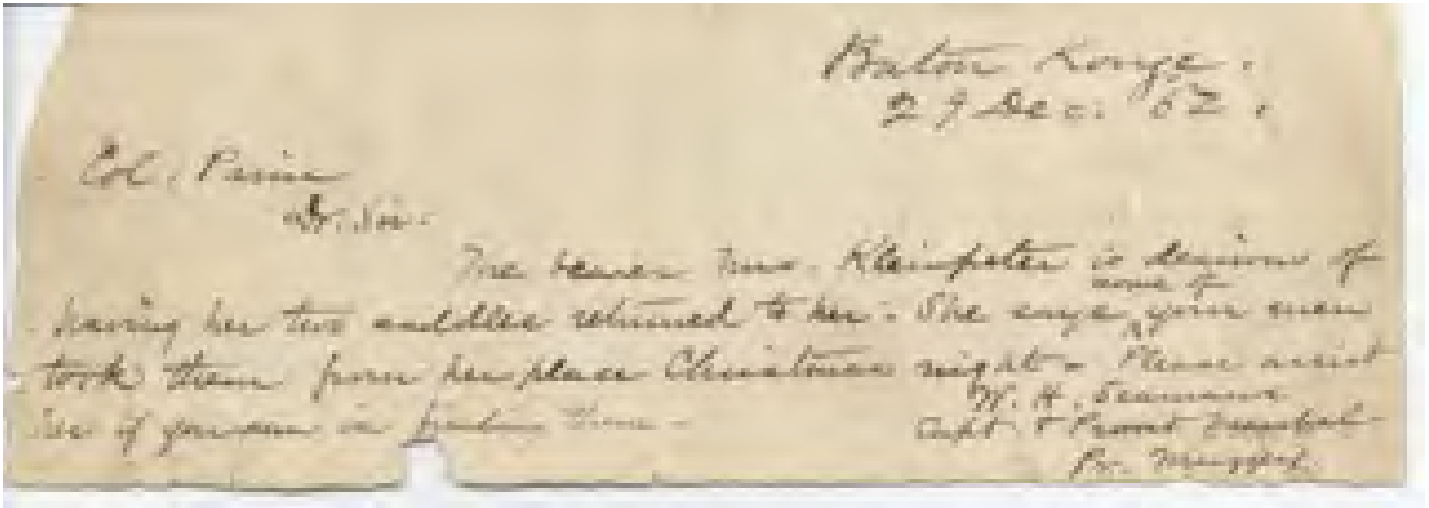 Baton Rouge.
29 Dec. 62.
Col. Prime
Dr. Sir.
The bearer Mrs. Kleinpeter is desirous of
some of
having her two saddles returned to her. She says your men
took them from her place Christmas night. Please assist
her if you can in finding them.
W. H. Seamans
Capt. & Provost Marshal